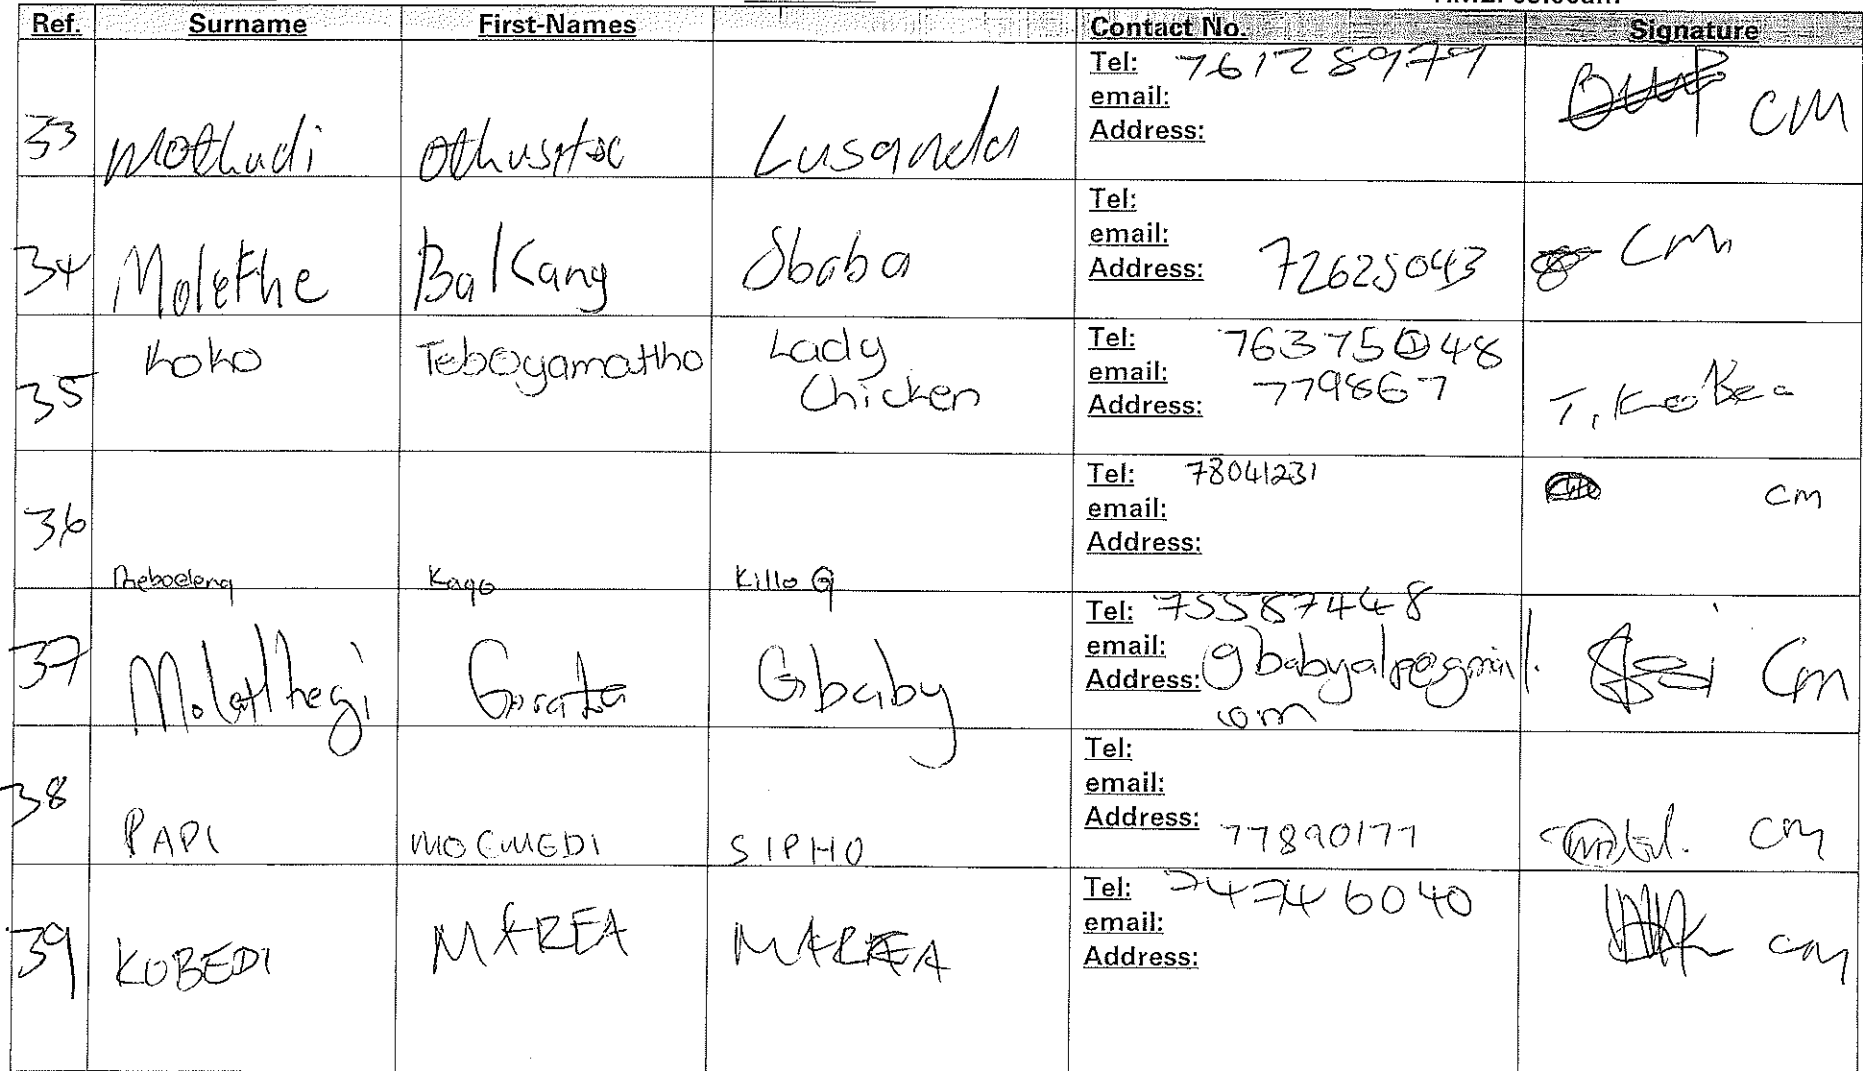 Ref. Surname First-Names Contact No. Signature
33 Mothudi Lusanda Tel: 76128979
email:
Address:
CM
34 Molefhe Bakang Sbaba Tel:
email:
Address: 72625043
CM
35 Koko Teboyamotlho Lady Chicken Tel: 76375048
email: 779867
Address:
T. Kooker
36 Kago Killo G Tel: 78041231
email:
Address:
CM
37 Molatlhegi Gorata Gbaby Tel: 75587448
email:
Address:
com
CM
38 PAPI MOEMEDI SIPHO Tel:
email:
Address: 77890177
CM
39 KOBEDI MAREA MAREA Tel: 74746040
email:
Address:
CM